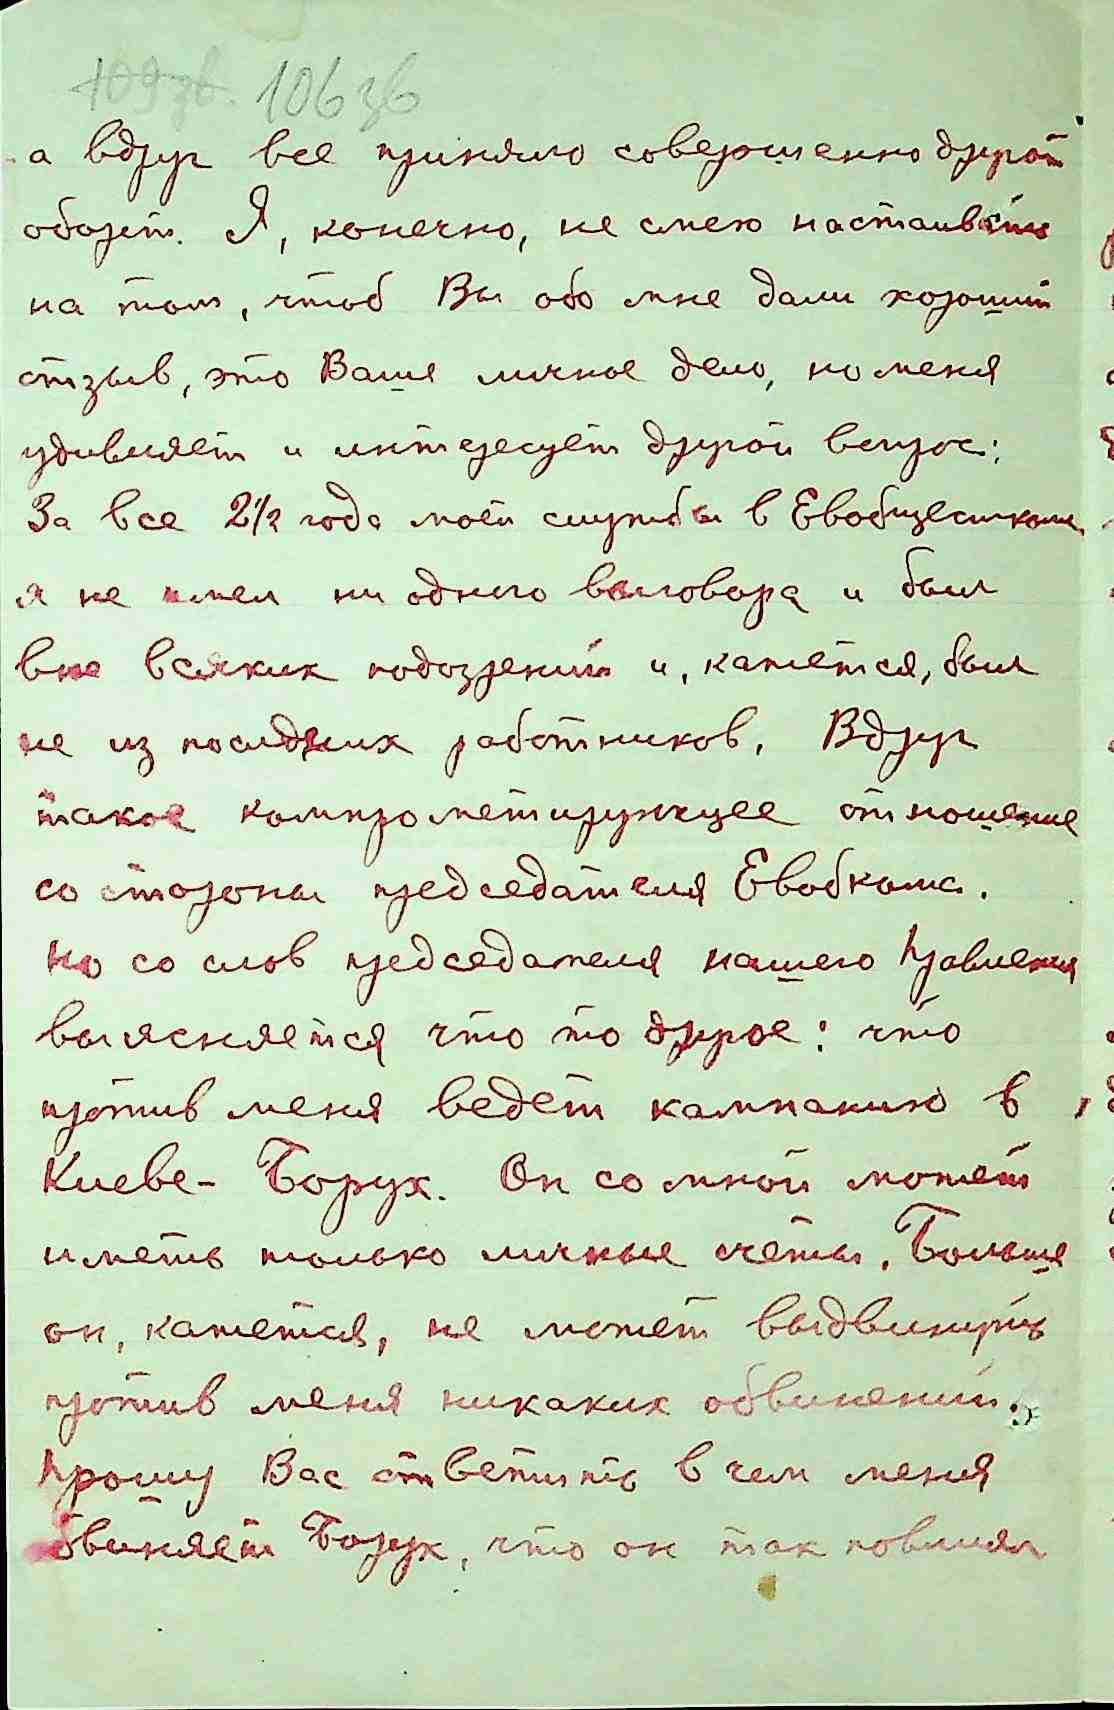 109 зв. 106 зв
а вдруг все приняло совершенно другой
оборот. Я, конечно, не смею настаивать
на том, чтоб Вы обо мне дали хороший
отзыв, это Ваше личное дело, но меня
удивляет и интересует другой вопрос:
За все 2 1/2 года моей службы в Евобщесткоме
я не имел ни одного выговора и был
вне всяких подозрений и, кажется, был
не из последних работников. Вдруг
такое компрометирующее отношение
со стороны председателя Евобкома.
Но со слов председателя нашего Правления
выясняется что то другое: что
против меня ведет кампанию в
Киеве - Борух. Он со мной может
иметь только личные счеты. Больше
он, кажется, не может выдвинуть
против меня никаких обвинений.
Прошу Вас ответить в чем меня
обвиняет Борух, что он так повлиял